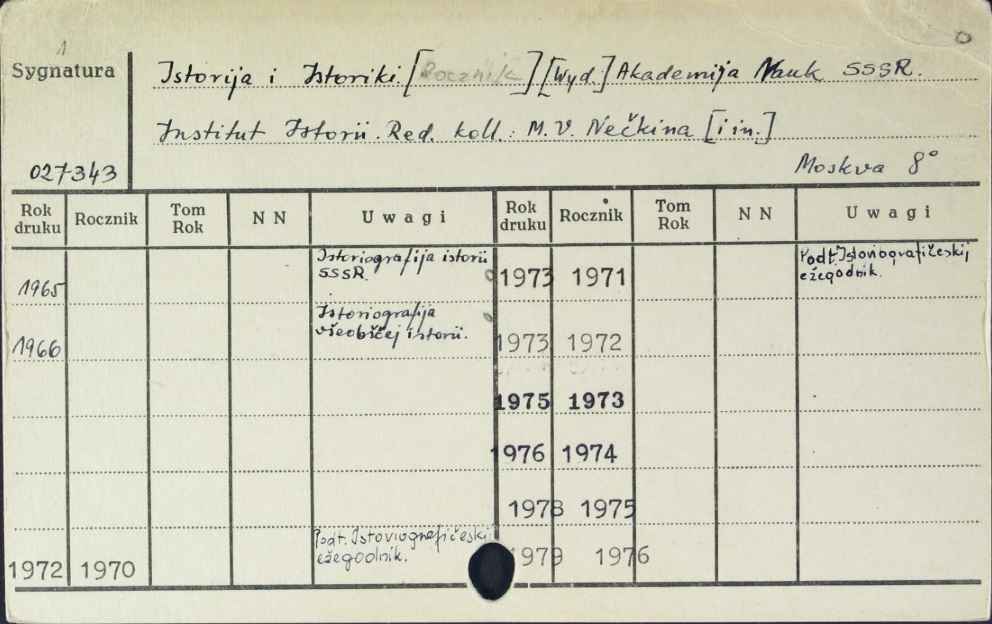 1
Sygnatura
Istorija i Istoriki. [Rocznik] [Wyd.] Akademija Nauk SSSR.
Institut Istorii. Red. koll.: M. V. Nečkina [i in.]
027343
Moskva 8°
Rok druku Rocznik Tom Rok N N Uwagi Rok druku Rocznik Tom Rok N N Uwagi
1965 Istoriografija istorii SSSR. 1973 1971 Podt. Istoriografičeskij ežegodnik.
1966 Istoriografija vseobščej istorii. 1973 1972
1975 1973
1976 1974
1978 1975
1972 1970 Podt. Istoriografičeskij ežegodnik. 1979 1976